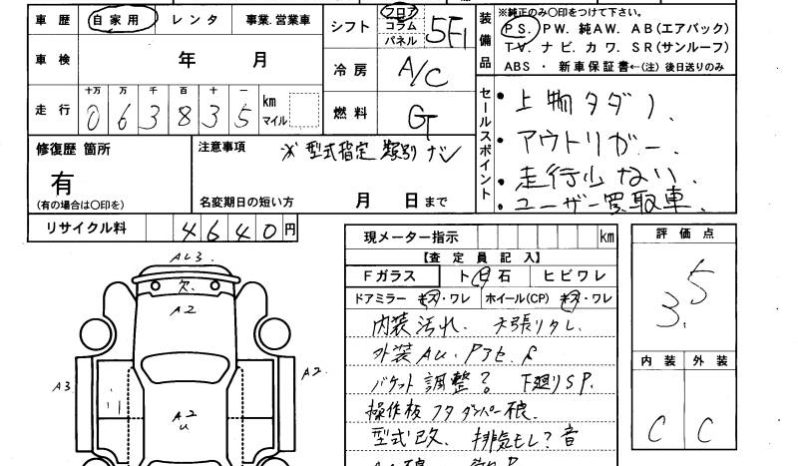 車歴 自家用 レンタ 事業.営業車
車検 年 月
十万 万 千 百 十 一
走行 0 6 3 8 3 5 km マイル
修復歴 箇所
有
(有の場合は〇印を)
注意事項 ※型式指定 類別ナシ
名変期日の短い方 月 日まで
リサイクル料 4640円
シフト フロア コラム パネル 5F1
冷房 A/C
燃料 G
装備品
※純正のみ〇印をつけて下さい。
PS. PW. 純AW. AB(エアバック)
TV. ナビ. カワ. SR(サンルーフ)
ABS ・ 新車保証書←(注)後日送りのみ
セールスポイント
・上物タダノ
・アウトリガー.
・走行少ない.
・ユーザー買取車.
現メーター指示 km
【査定員記入】
Fガラス トビ石 ヒビワレ
ドアミラー キズ・ワレ ホイール(CP) キズ・ワレ
内装汚れ. 天張りタレ.
外装AU.
バケット調整? 下廻りSP.
操作板フタ ダンパー痕.
型式改. 排気もレ?音
評価点
3.5
内装 外装
C C
欠.
A2
A3
A2
A2
U